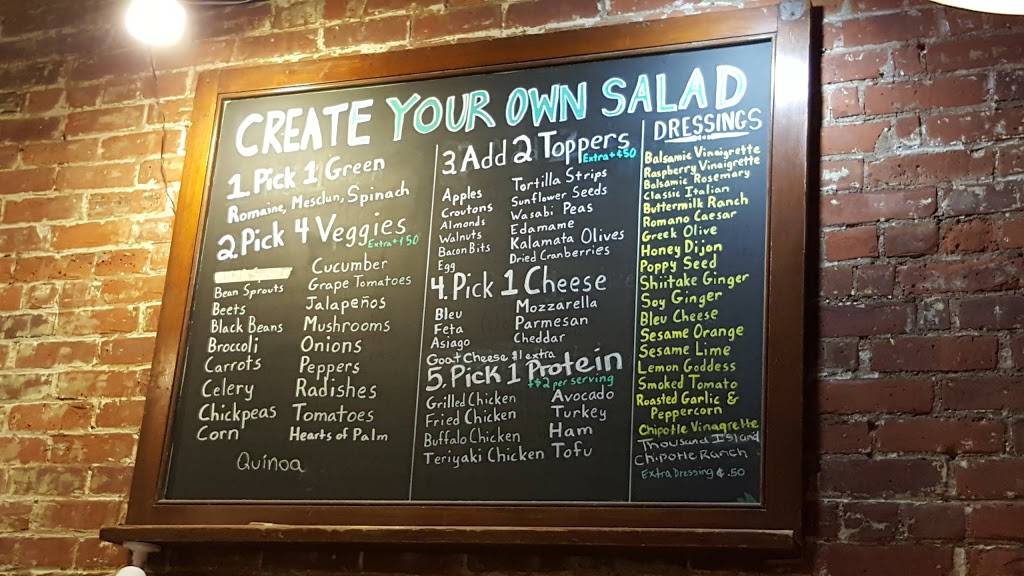 CREATE YOUR OWN SALAD
1. Pick 1 Green
Romaine, Mesclun, Spinach
2. Pick 4 Veggies
Extra + $.50
Bean Sprouts
Beets
Black Beans
Broccoli
Carrots
Celery
Chickpeas
Corn
Cucumber
Grape Tomatoes
Jalapeños
Mushrooms
Onions
Peppers
Radishes
Tomatoes
Hearts of Palm
Quinoa
3. Add 2 Toppers
Extra + $.50
Apples
Croutons
Almonds
Walnuts
Bacon Bits
Egg
Tortilla Strips
Sunflower Seeds
Wasabi Peas
Edamame
Kalamata Olives
Dried Cranberries
4. Pick 1 Cheese
Bleu
Feta
Asiago
Mozzarella
Parmesan
Cheddar
Goat Cheese $1 extra
5. Pick 1 Protein
+$2 per serving
Grilled Chicken
Fried Chicken
Buffalo Chicken
Teriyaki Chicken
Avocado
Turkey
Ham
Tofu
DRESSINGS
Balsamic Vinaigrette
Raspberry Vinaigrette
Balsamic Rosemary
Classic Italian
Buttermilk Ranch
Romano Caesar
Greek Olive
Honey Dijon
Poppy Seed
Shiitake Ginger
Soy Ginger
Bleu Cheese
Sesame Orange
Sesame Lime
Lemon Goddess
Smoked Tomato
Roasted Garlic &
Peppercorn
Chipotle Vinagrette
Thousand Island
Chipotle Ranch
Extra Dressing $.50